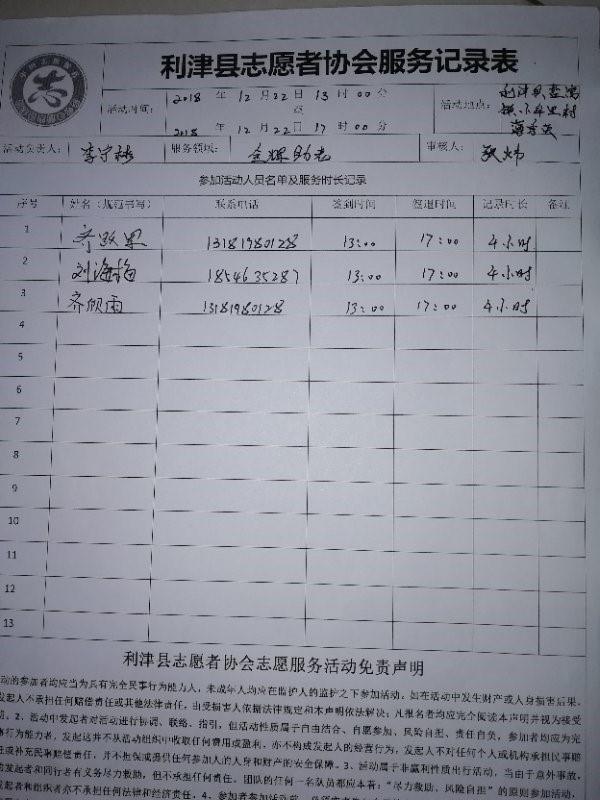 利津县志愿者协会服务记录表
活动时间： 2018 年 12 月 22 日 13 时 00 分
至
2018 年 12 月 22 日 17 时 00 分
活动地点： 利津县盐窝
镇
活动负责人： 李守彬 服务领域： 金辉助老 审核人：
参加活动人员名单及服务时长记录
序号 姓名（规范书写） 联系电话 签到时间 签退时间 记录时长 备注
1 齐跃 13181980128 13:00 17:00 4小时
2 刘海梅 1854635287 13:00 17:00 4小时
3 齐欣雨 13181980128 13:00 17:00 4小时
4
5
6
7
8
9
10
11
12
13
利津县志愿者协会志愿服务活动免责声明
动的参加者均应当为具有完全民事行为能力人，未成年人均应在监护人的监护之下参加活动。如在活动中发生财产或人身损害后果，
发起人不承担任何赔偿责任或其他法律责任，由受损害人依据法律规定和本声明依法解决；凡报名者均应完全阅读本声明并视为接受
明。2、活动中发起者对活动进行协调、联络、指引，但活动性质属于自由结合、自愿参加、风险自担、责任自负，参加者均应为完
事行为能力者，发起这并不从活动组织中收取任何费用或盈利，亦不构成发起人的经营行为，发起人不对任何个人或机构承担民事赔
任或补充民事赔偿责任，并不担保或提供任何参加人的人身和财产的安全保障。3、活动属于非赢利性质出行活动，当由于意外事故，
的发起者和同行者有义务尽力救助，但不承担任何责任。团队的任何一名队员都应本着："尽力救助、风险自担"的原则参加活动，
发起者和组织者亦不承担任何法律和经济责任。4、参加者参加活动前，